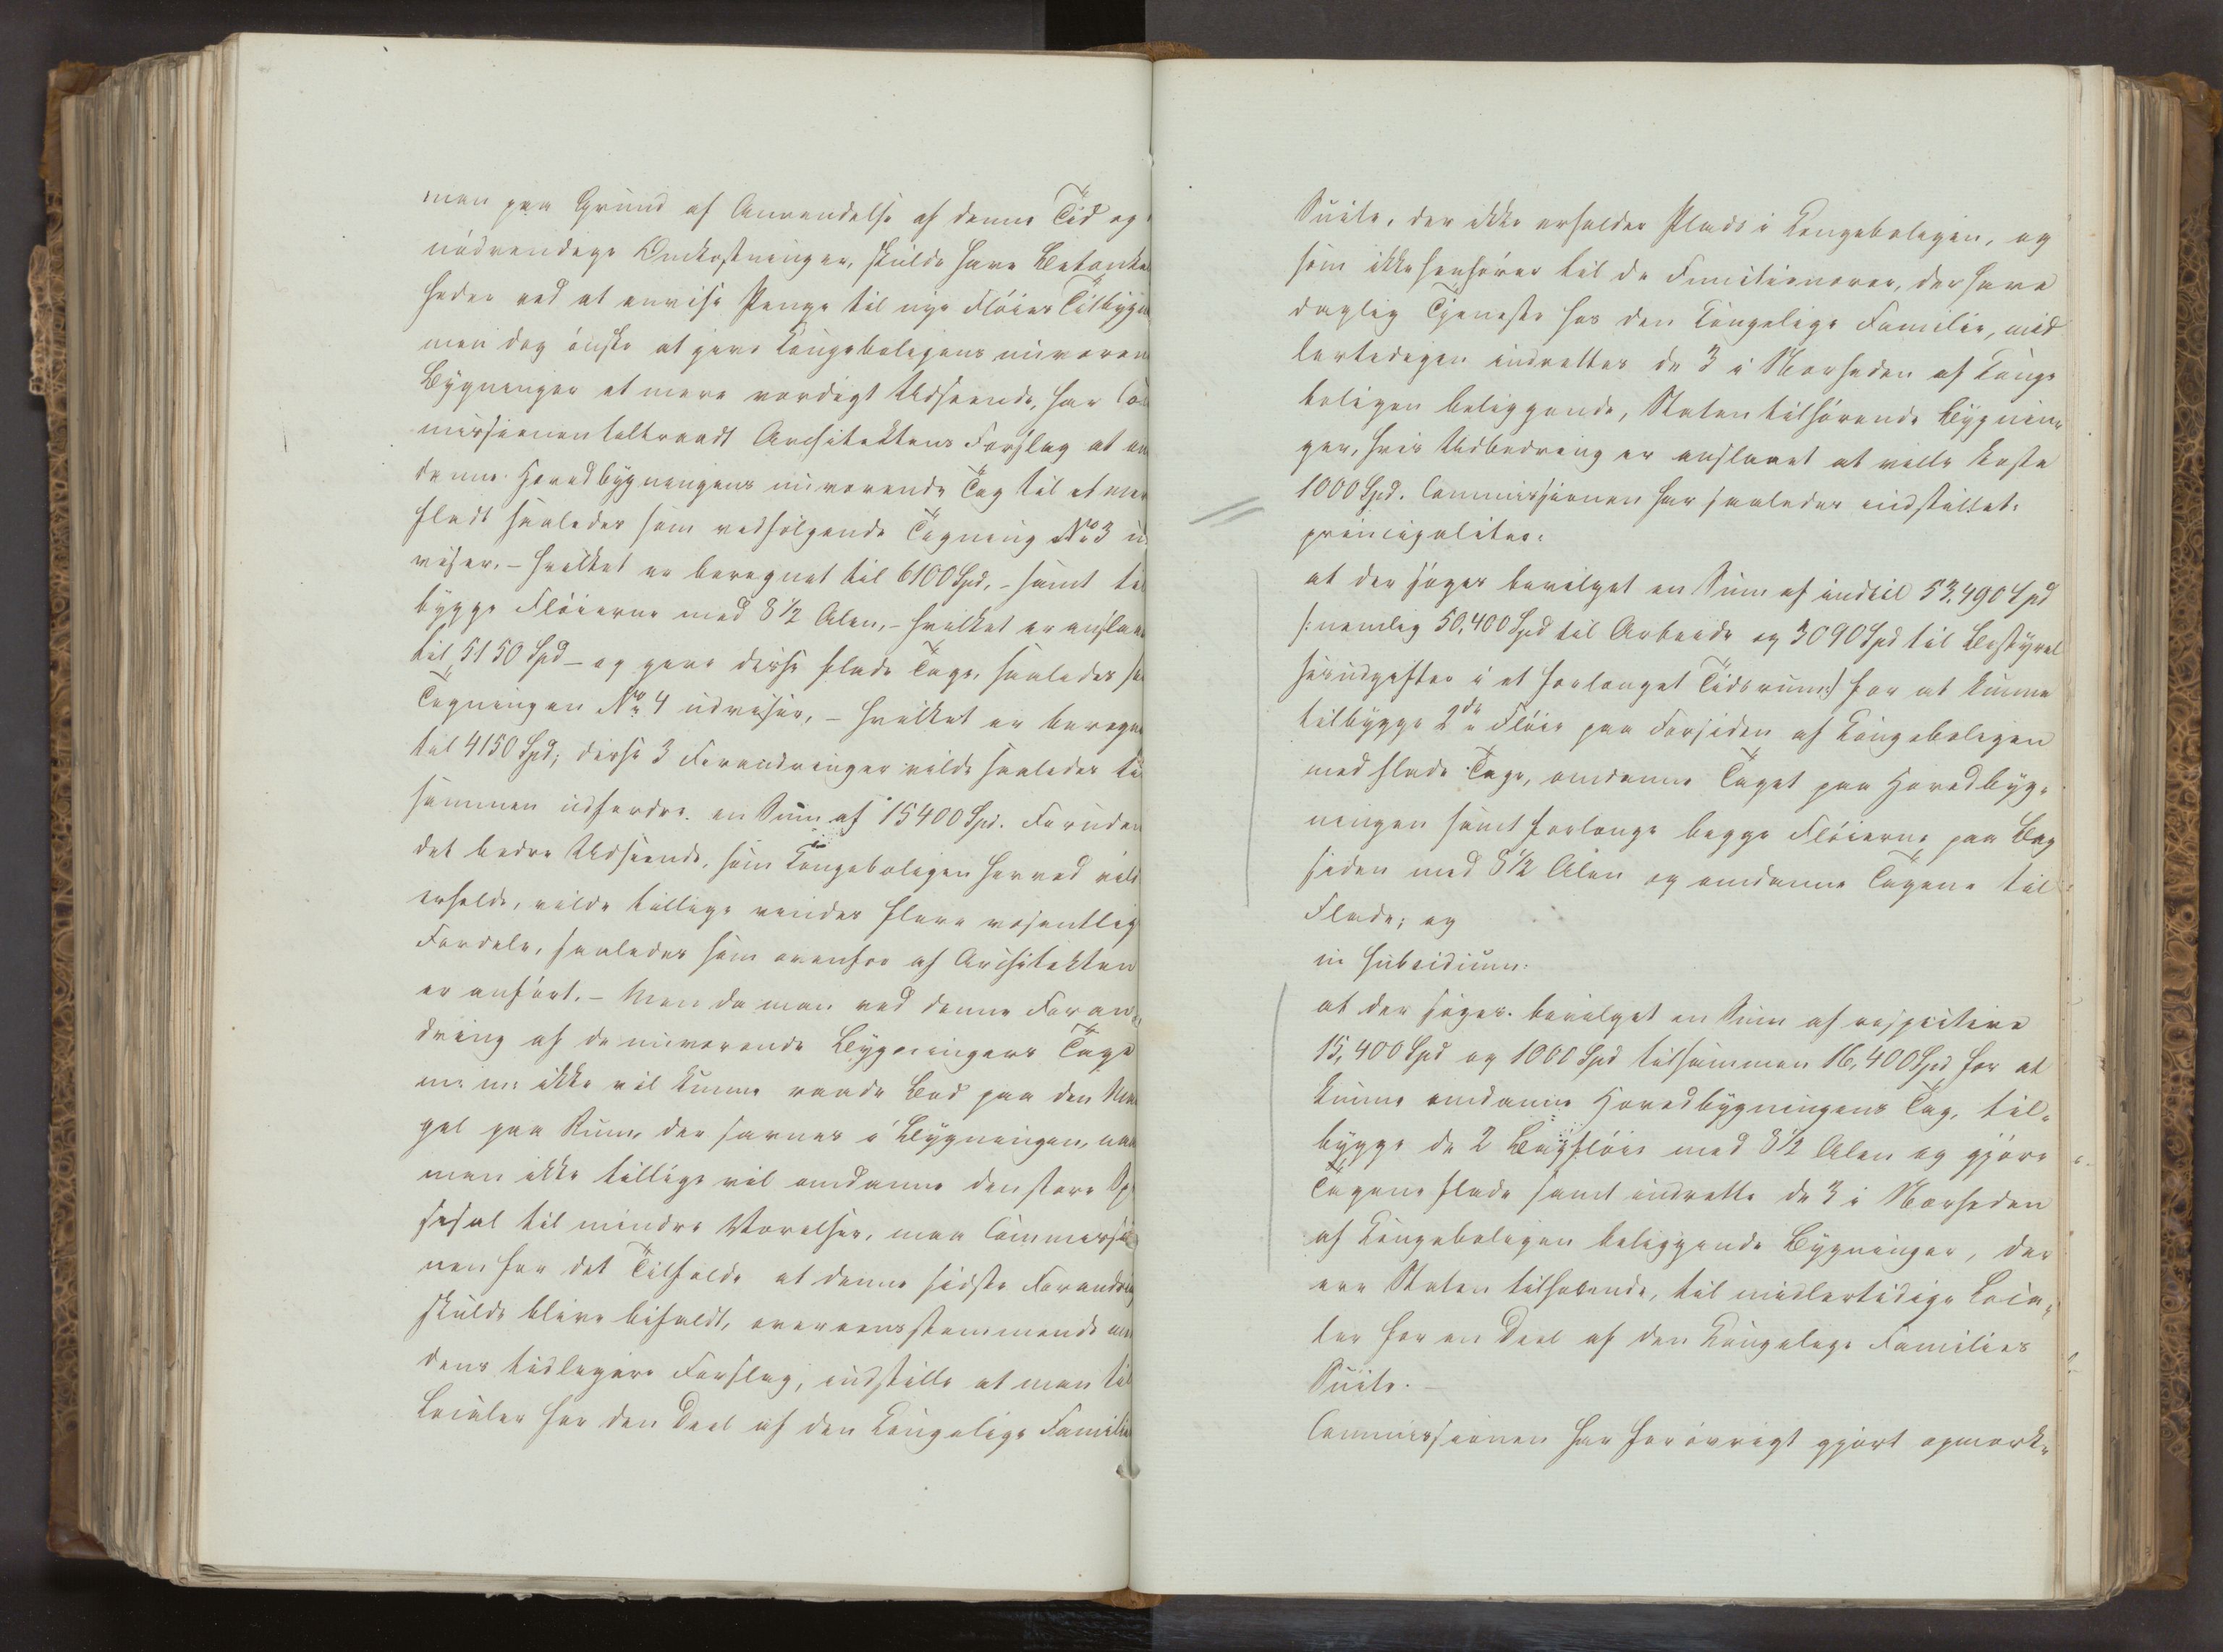 man paa Grund af Anvendelse af denne Tid og
nödvendige Omkostninger, skulde have Betænke
heder ved at anvise Penge til nye Flöies Tilbygn
men dog önske at give Kongeboligens nuværen
Bygninger et mere værdigt Udseende, har Com
missionen tiltraadt Architektens Forslag at om
danne Hovedbygningens nuværende Tag til et mer
fladt saaledes som vedfölgende Tegning No 3 u
viser, - hvilket er beregnet til 6100 Spd, - samt til
bygge Flöierne med 8 1/2 Alen, - hvilket er anslaae
til 5150 Spd - og give disse flade Tage, saaledes so
Tegningen No 4 udviser, - hvilket er beregne
til 4150 Spd; disse 3 Forandringer vilde saaledes til
sammen udfordre en Sum af 15400 Spd. Foruden
det bedre Udseende, som Kongeboligen herved vild
erholde, vilde tillige vindes flere væsentlig
Fordele, saaledes som ovenfor af Architekten
er anfört. - Men da man ved denne Foran„
dring af de nuværende Bygningers Tage
ikke vil kunne raade Bod paa den Man
gel paa Rum, der savnes i Bygningen, naar
man ikke tillige vil omdanne den store Sp
sesal til mindre Værelser, maa Commissio
nen for det Tilfælde at denne sidste Forandrin
skulde blive bifaldt, overeensstemmende med
dens tidligere Forslag, indstille at man til
Localer for den Deel af den Kongelige Familie
Suite, der ikke erholder Plads i Kongeboligen, og
som ikke henhörer til de Functionairer, der have
daglig Tjeneste hos den Kongelige Familie, mid
lertidigen indrettes de 3 i Nærheden af Konge
boligen beliggende, Staten tilhörende Bygnin„
ger, hvis Udbedring er anslaaet at ville koste
1000 Spd. Commissionen har saaledes indstillet:
principaliter:
at der söges bevilget en Sum af indtil 53,490 Spd
/: nemlig 50,400 Spd til Arbeide og 3090 Spd til Bestyrel
sesudgifter i et forlænget Tidsrum :/ for at kunne
tilbygge 2de Flöie paa Forsiden af Kongeboligen
med flade Tage, omdanne Taget paa Hovedbyg„
ningen samt forlænge begge Flöierne paa Bag
siden med 8 1/2 Alen og omdanne Tagene til
Flade; og
in subsidium:
at der söges bevilget en Sum af respective
15,400 Spd og 1000 Spd tilsammen 16,400 Spd for at
kunne omdanne Hovedbygningens Tag, til„
bygge de 2 Bagflöie med 8 1/2 Alen og gjöre
Tagene flade samt indrette de 3 i Nærheden
af Kongeboligen beliggende Bygninger, der
ere Staten tilhörende, til midlertidige Loca„
ler for en Deel af den Kongelige Families
Suite. -
Commissionen har forövrigt gjört opmærk„